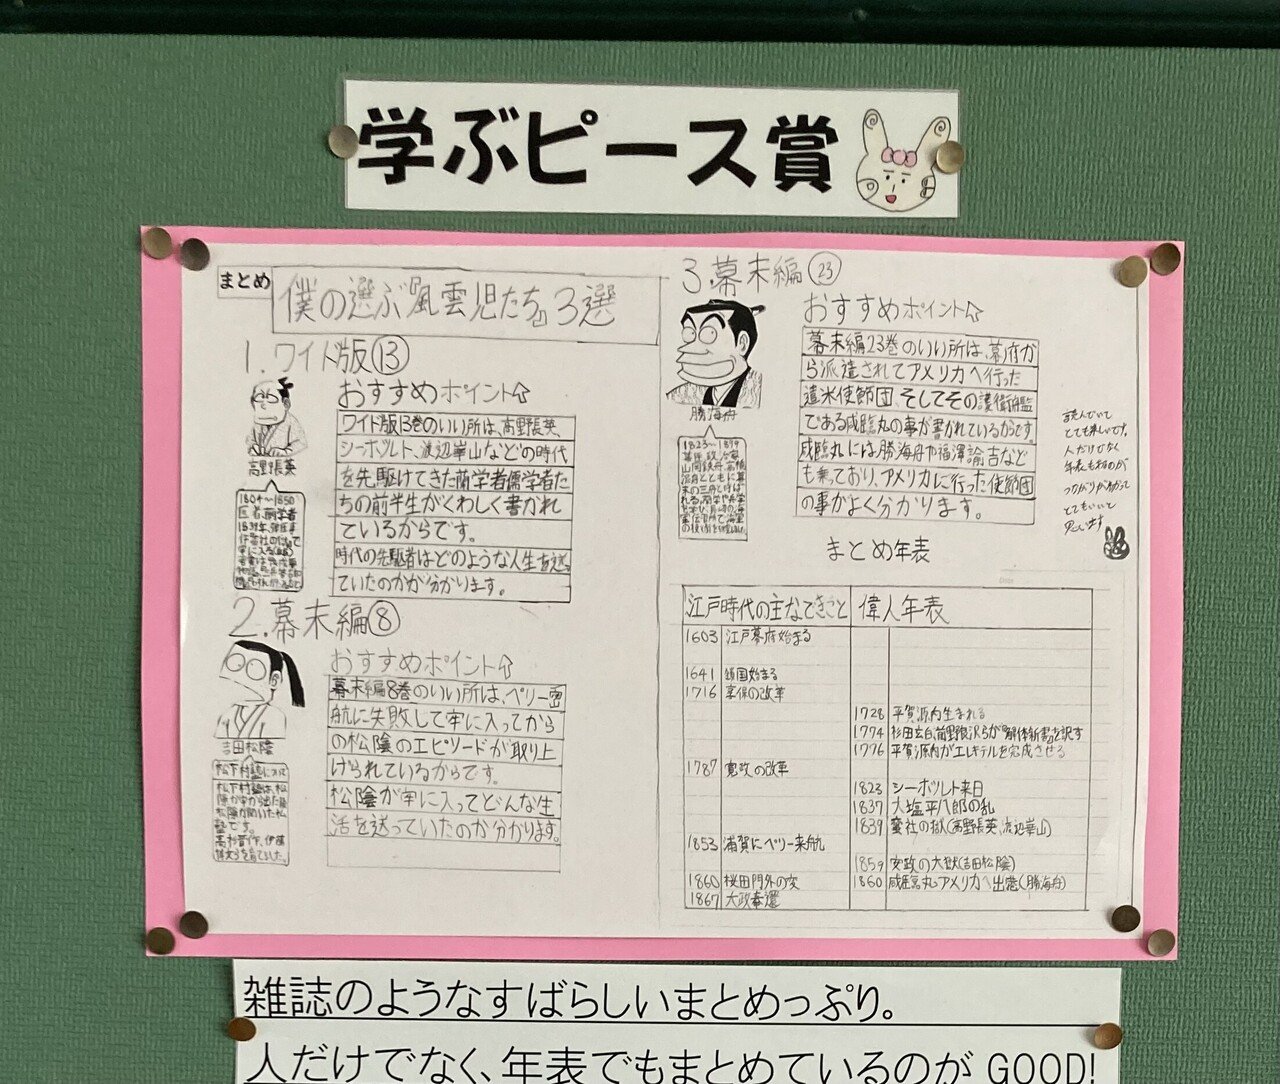 学ぶピース賞
まとめ
僕の選ぶ『風雲児たち』3選
1.ワイド版⑬
おすすめポイント
ワイド版13巻のいい所は、高野長英、
シーボルト、渡辺崋山などの時代
を先駆けてきた蘭学者儒学者た
ちの前半生がくわしく書かれ
ているからです。
時代の先駆者はどのような人生を送っ
ていたのかが分かります。
高野長英
1804〜1850
医者、蘭学者
2.幕末編⑧
おすすめポイント
幕末編8巻のいい所は、ペリー密
航に失敗して牢に入ってから
の松陰のエピソードが取り上
げられているからです。
松陰が牢に入ってどんな生
活を送っていたのか分かります。
吉田松陰
松下村塾について
松下村塾は、松
陰が牢から出た後
松陰が開いた私
塾です。
高杉晋作、伊藤
3.幕末編㉓
おすすめポイント
幕末編23巻のいい所は、幕府か
ら派遣されてアメリカへ行った
遣米使節団そしてその護衛艦
である咸臨丸の事が書かれているからです。
咸臨丸には勝海舟や福澤諭吉など
も乗っており、アメリカに行った使節団
の事がよく分かります。
勝海舟
1823〜1899
幕臣、政治家
山岡鉄舟、高橋
泥舟とともに幕
末の三舟と呼ば
れる。
読んでいて
とても楽しいです。
人だけでなく
年表もあるのが
つながりが分かって
とてもいいと
思います
まとめ年表
江戸時代の主なできごと 偉人年表
1603 江戸幕府始まる
1641 鎖国始まる
1716 享保の改革
1728 平賀源内生まれる
1774 杉田玄白、前野良沢らが『解体新書』を訳す
1776 平賀源内がエレキテルを完成させる
1787 寛政の改革
1823 シーボルト来日
1837 大塩平八郎の乱
1839 蛮社の獄(高野長英、渡辺崋山)
1853 浦賀にペリー来航
1859 安政の大獄(吉田松陰)
1860 桜田門外の変 1860 咸臨丸アメリカへ出港(勝海舟)
1867 大政奉還
雑誌のようなすばらしいまとめっぷり。
人だけでなく、年表でもまとめているのが GOOD!